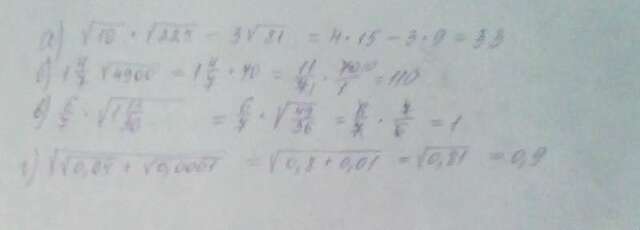 а) √10 · √225 − 3√81 = 4 · 15 − 3 · 9 = 33
б) 1 4/7 √4900 = 1 4/7 · 70 = 11/7 · 70/1 = 110
в) 6/7 · √(1 13/36) = 6/7 · √(49/36) = 6/7 · 7/6 = 1
г) √(√0,64 + √0,0001) = √(0,8 + 0,01) = √0,81 = 0,9